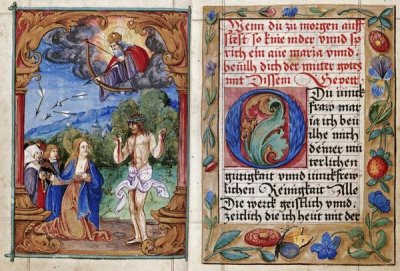 Wenn du zu morgen auff
stest so knie nider vnnd so
rich ein aue maria vnnd
beuilh dich der mutter gotes
mit Dissem Gepett.
O Du iunck
fraw mar
ia ich beui
lhe mich
deiner mi
terlichen
gütigkait vnnd iunckfrew
lichen Reinigkait Alle
Die werck geistlich vnnd
zeitlich die ich heut mit der